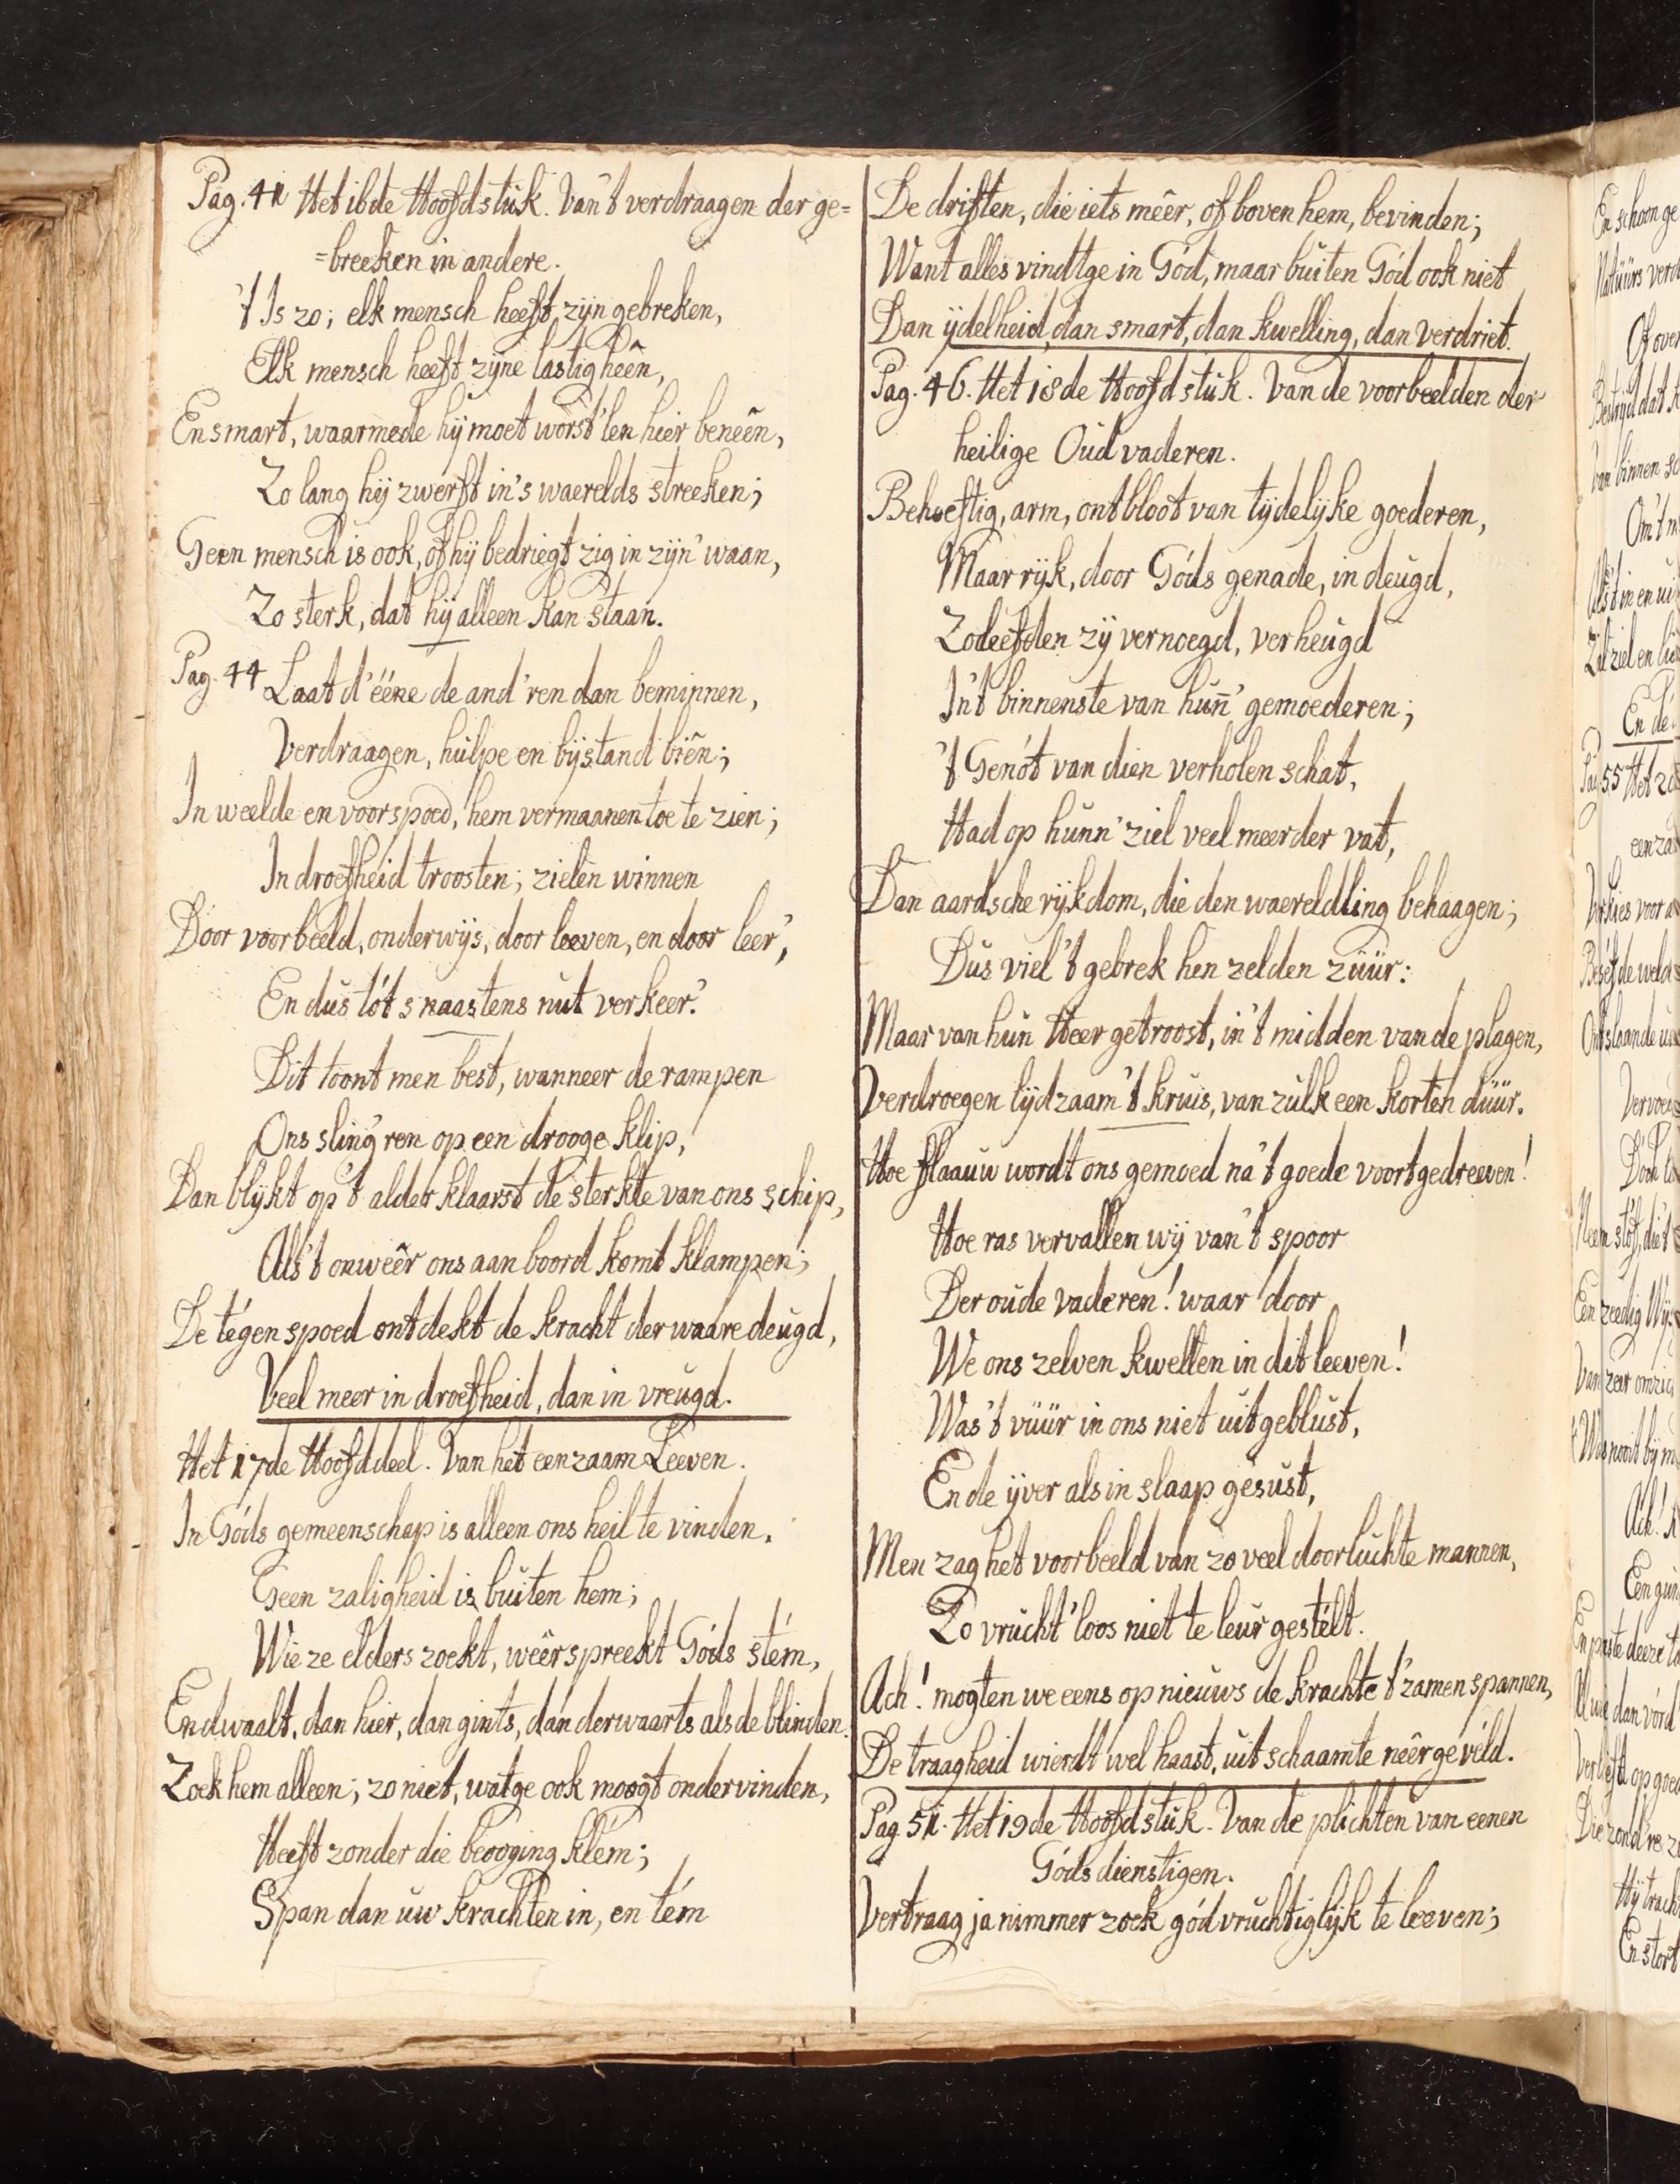 Pag. 41 Het 16de Hoofdstuk. Van 't verdraagen der ge=
=breeken in andere.
't Is zo; elk mensch heeft zijn gebreken,
Elk mensch heeft zijne lastigheên,
En smart, waarmede hij moet worst'len hier beneên,
Zo lang hij zwerft in 's waerelds streeken;
Geen mensch is ook, of hij bedriegt zig in zijn' waan,
Zo sterk, dat hij alleen kan staan.
Pag. 44 Laat d'ééne de and'ren dan beminnen,
Verdraagen, hulpe en bijstand biên;
In weelde en voorspoed, hem vermaanen toe te zien;
In droefheid troosten; zielen winnen
Door voorbeeld, onderwijs, door leeven, en door leer',
En dus tót s naastens nut verkeer'.
Dit toont men best, wanneer de rampen
Ons sling'ren op een drooge klip,
Dan blijkt op 't alder klaarst de sterkte van ons schip,
Als 't onweêr ons aan boord komt klampen;
De tégenspoed ontdekt de kracht der waare deugd,
Veel meer in droefheid, dan in vreugd.
Het 17de Hoofddeel. Van het eenzaam Leeven.
In Góds gemeenschap is alleen ons heil te vinden.
Geen zaligheid is buiten hem;
Wie ze elders zoekt, weêrspreekt Góds stém,
En dwaalt, dan hier, dan gints, dan derwaarts als de blinden.
Zoek hem alleen; zo niet, wat ge ook moogt ondervinden,
Heeft zonder die beooging klém;
Span dan uw krachten in, en tém
De driften, die iets mêer, of boven hem, bevinden;
Want alles vindt ge in Gód, maar buiten Gód ook niet
Dan ijdelheid, dan smart, dan kwelling, dan verdriet.
Pag. 46. Het 18de Hoofdstuk. Van de voorbeelden der
heilige Oudvaderen.
Behoeftig, arm, ontbloot van tijdelijke goederen,
Maar rijk, door Góds genade, in deugd,
Zo leefden zij vernoegd, verheugd
In 't binnenste van hunn' gemoederen;
't Genót van dien verholen schat,
Had op hunn' ziel veel meerder vat,
Dan aardsche rijkdom, die den waereldling behaagen;
Dus viel 't gebrek hen zelden züür:
Maar van hun Heer getroost, in 't midden van de plagen,
Verdroegen lijdzaam 't kruis, van zulk een korten düür.
Hoe flaauw wordt ons gemoed na 't goede voortgedreeven!
Hoe ras vervallen wij van 't spoor
Der oude vaderen! waar door
We ons zelven kwellen in dit leeven!
Was 't vüür in ons niet uitgeblust,
En de ijver als in slaap gesust,
Men zag het voorbeeld van zo veel doorluchte mannen,
Zo vrucht'loos niet te leur gestélt.
Ach! mogten we eens op nieuws de krachte t'zamen spannen,
De traagheid wierdt wel haast, uit schaamte neêrgevéld.
Pag. 51. Het 19de Hoofdstuk. Van de plichten van eenen
Góds dienstigen.
Vertraag ja nimmer zoek gódvruchtiglijk te leeven;